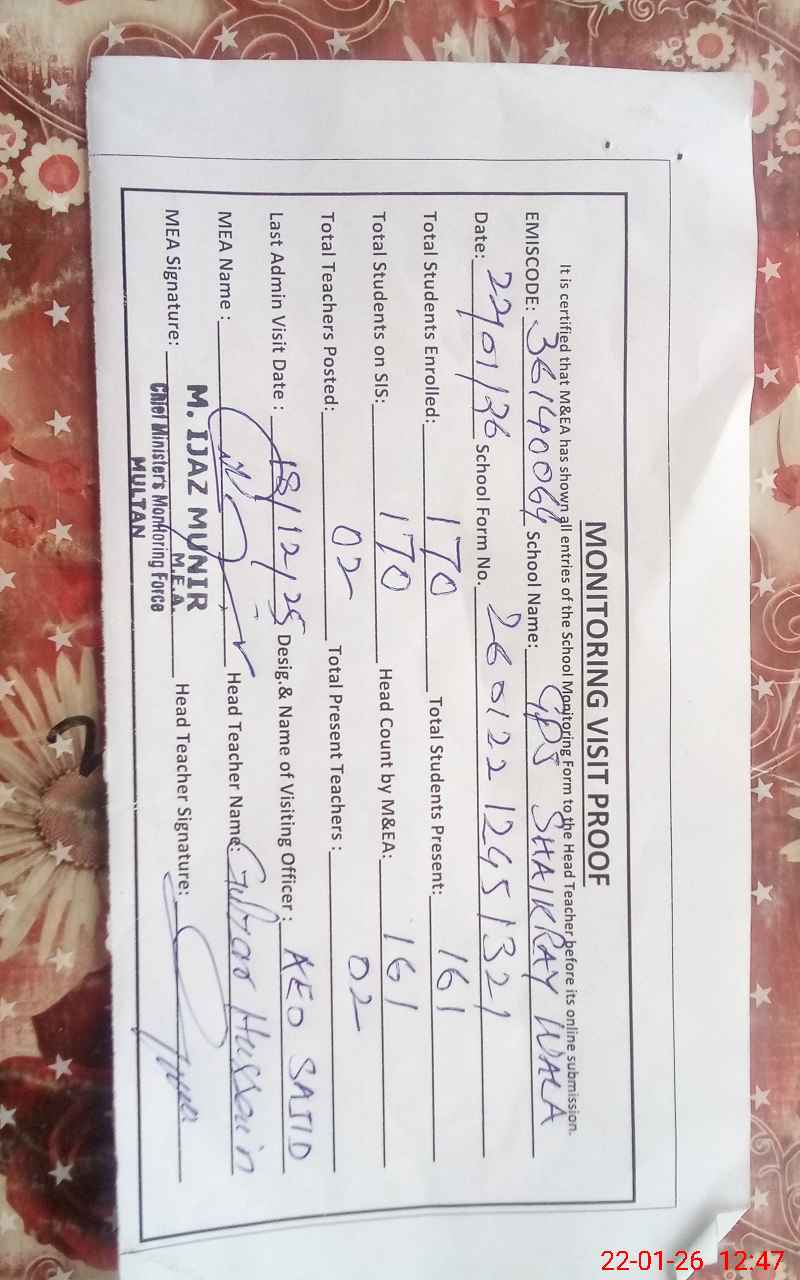 MONITORING VISIT PROOF
It is certified that M&EA has shown all entries of the School Monitoring Form to the Head Teacher before its online submission.
EMISCODE: 36140064 School Name: GPS SHAIKRAY WALA
Date: 22/01/26 School Form No. 260122 1245 1321
Total Students Enrolled: 170 Total Students Present: 161
Total Students on SIS: 170 Head Count by M&EA: 161
Total Teachers Posted: 02 Total Present Teachers : 02
Last Admin Visit Date : 18/12/25 Desig.& Name of Visiting Officer : AEO SAJID
MEA Name : Head Teacher Name: Gulzar Hussain
MEA Signature: Head Teacher Signature:
M. IJAZ MUNIR
M.E.A.
Chief Minister's Monitoring Force
MULTAN
22-01-26 12:47